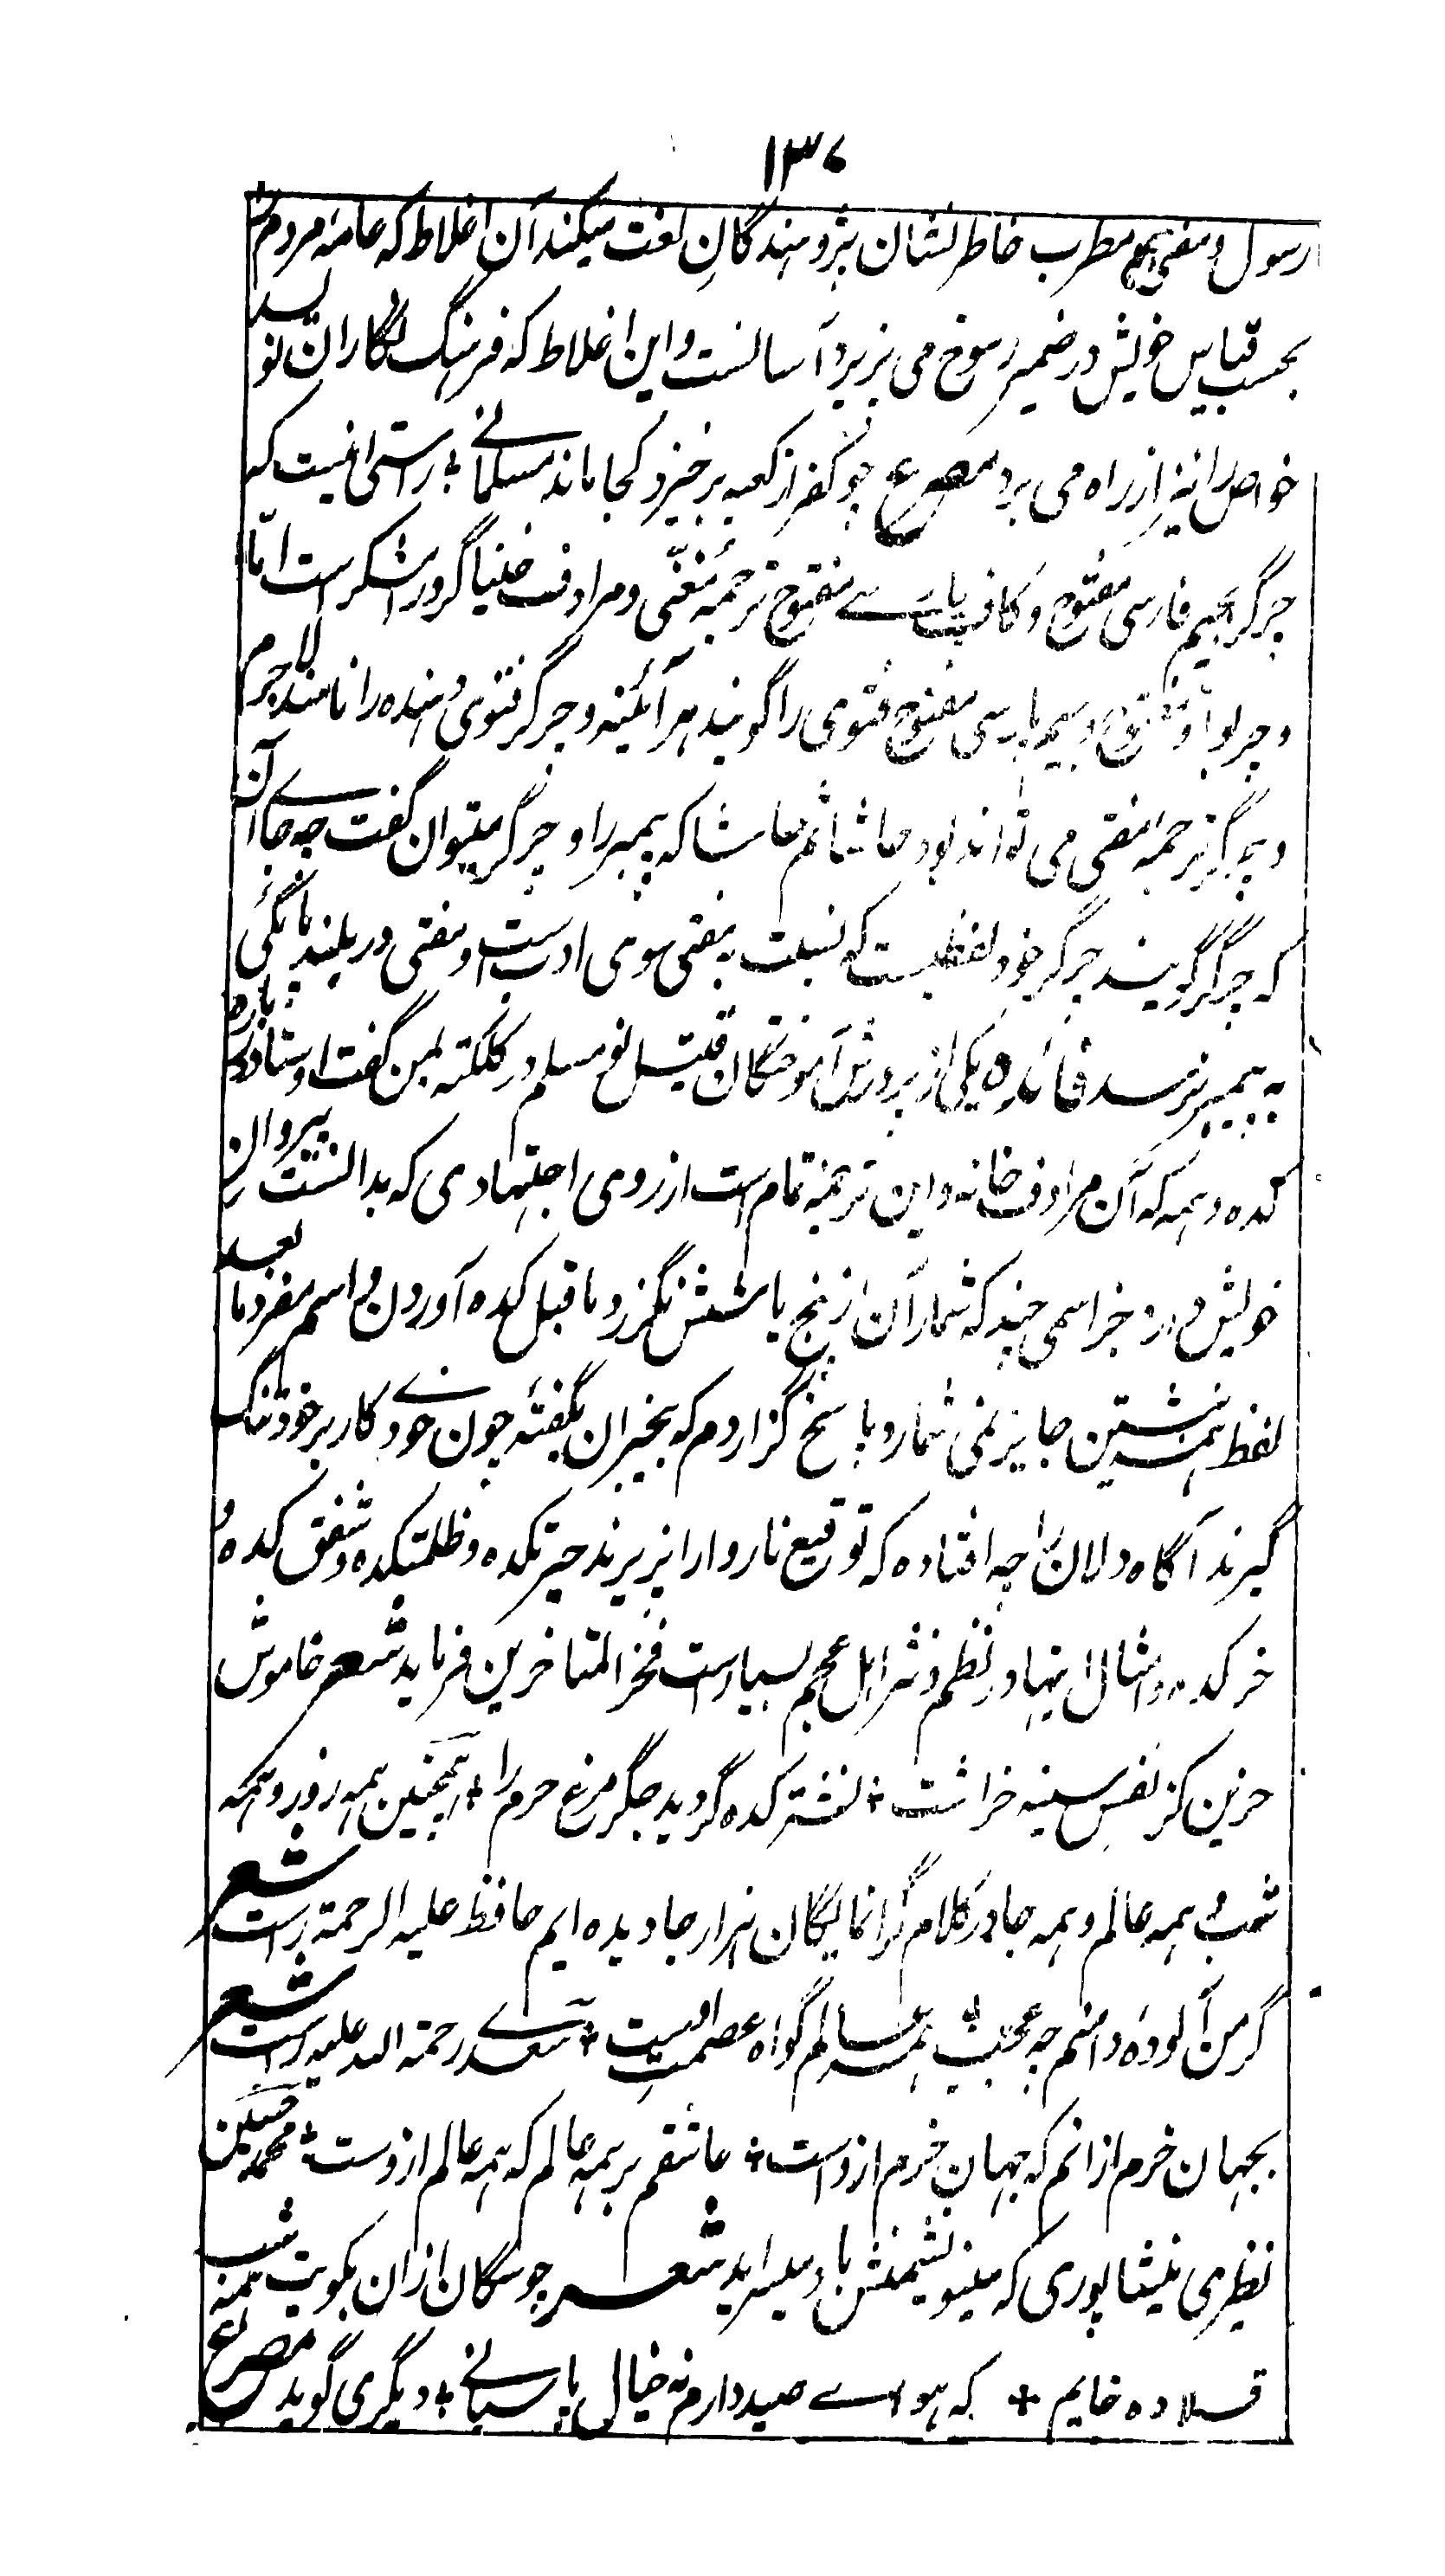 ۱۳۷
رسول و مفتی هم مطرب خاطر نشان پژوهندگانِ لغت میکند آن اغلاط که عامهٔ مردم را
بحسب قیاس خویش در ضمیر رسوخ می پزیرد آسانست و این اغلاط که فرهنگ نگاران نویسند
خواص را نیز از راه می برد مصرع چو کفر از کعبه برخیزد کجا ماند مسلمانے ÷ راستی اینست که
چرگر بجیم فارسی مفتوح و کاف پارسے مفتوح ترجمهٔ مغنّی و مرادف خنیاگر و رامشگر است امّا
و چربواو مفتوح و جیم پارسی مفتوح فتوی را گویند هر آئینه و چرگر فتوی دهنده را نامند لاجرم
و چرگر ترجمهٔ مفتی می تواند بود حاشا ثم حاشا که پیمبر را و چرگر میتوان گفت چه جاے آن
که چرگر گویند چرگر خود لفظیست که نسبت به مفتی سوی ادب است و مفتی در بلند پایگی
به پیمبر نرسد فائده یکی از پرورش آموختگان قتیل نو مسلم در کلکته بمن گفت اوستاد دربارهٔ
کده و همه که آن مرادف خانه و این ترجمهٔ تمام است از روی اجتهادی که بدانست پیروان
خویش دارد جز اسمی چند که شمار آن از پنج یا شش نگزرد ما قبل کده آوردن و اسم مفرد ما بعد
لفظ همه نبشتن جایز نمی شمارد پاسخ گزاردم که بیخبران بگفتهٔ چون خودے کار بر خود تنگ
گیرند آگاه دلان را چه افتاده که توقیع ناروا را پزیرند حیرتکده و ظلمتکده و شفق کده و
خرکده و امثال اینها در نظم و نثر اهل عجم بسیارست فخر المتاخرین فرماید شعر خاموش
حزین کز نفسِ سینه خراشت ÷ نشتر کده گردید جگر مرغ حرم را ÷ همچنین همه روز و همه
شب و همه عالم و همه جا در کلام گرانمایگان هزار جا دیده ایم حافظ علیه الرحمة راست شعر
گر من آلودهٔ دامنم چه عجب ÷ همه عالم گواه عصمتِ اوست ÷ سعدے رحمة الله علیه راست شعر
بجهان خرم ازانم که جهان خرم ازوست ÷ عاشقم بر همه عالم که همه عالم ازوست ÷ محمد حسین
نظیری نیشاپوری که مینو نشیمنش باد میسراید شعر چو سگان ازان بکویت همه شب
قلاده خایم ÷ که هواے صید دارم نه خیال پاسبانے ÷ دیگری گوید مصرع